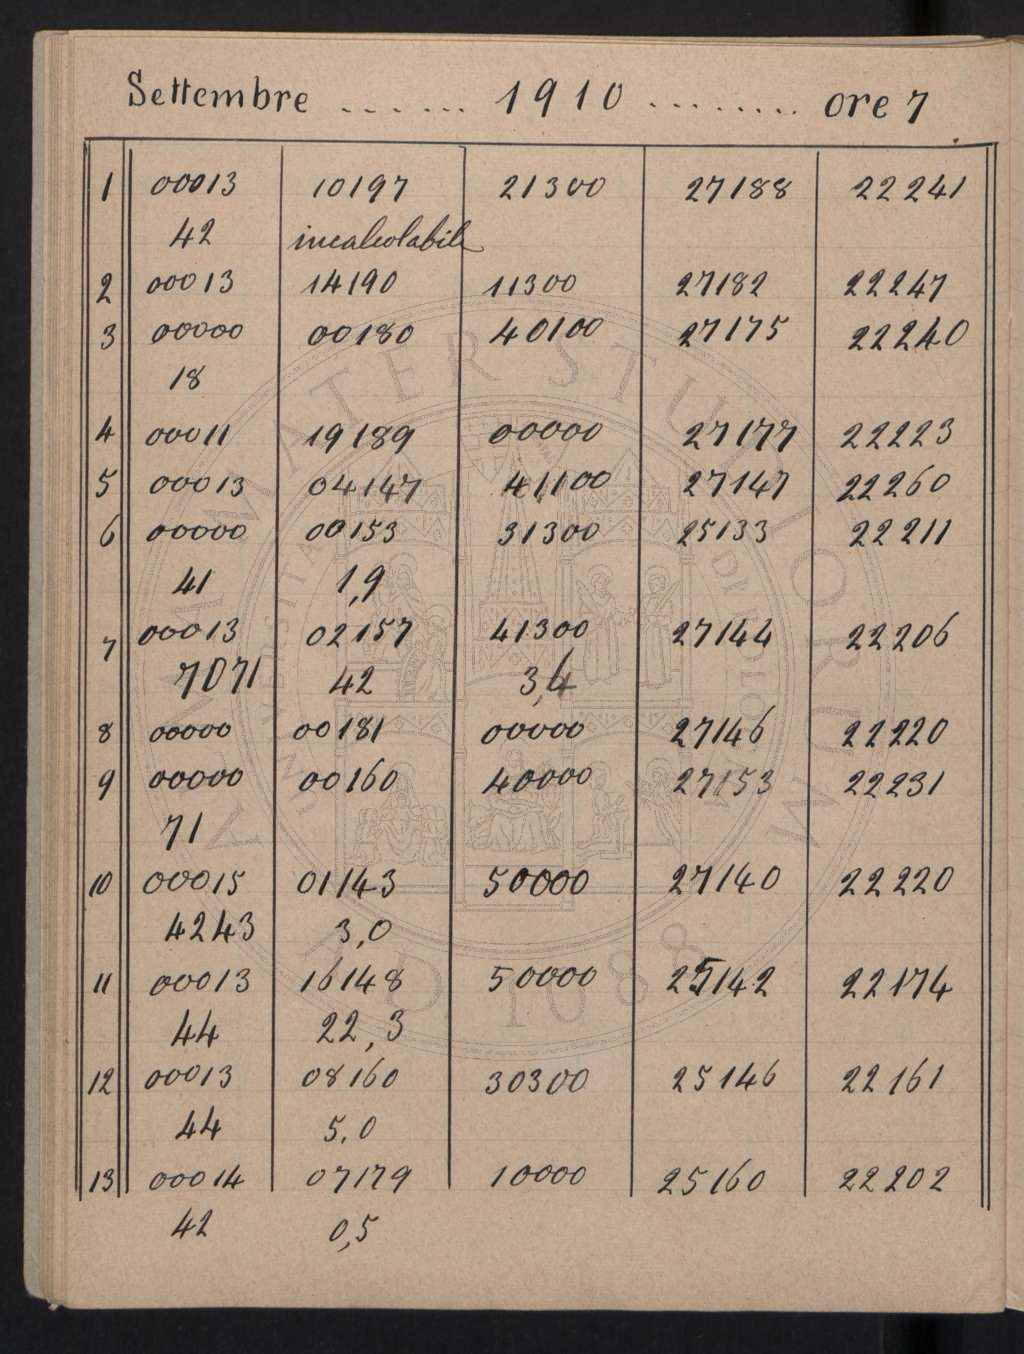 Settembre ...... 1910 ........ ore 7
1 00013 10197 21300 27188 22241
42 incalcolabile
2 00013 14190 11300 27182 22247
3 00000 00180 40100 27175 22240
18
4 00011 19189 00000 27177 22223
5 00013 04147 41100 27147 22260
6 00000 00153 31300 25133 22211
41 1,9
7 00013 02157 41300 27144 22206
7071 42 3,4
8 00000 00181 00000 27146 22220
9 00000 00160 40000 27153 22231
71
10 00015 01143 50000 27140 22220
4243 3,0
11 00013 16148 50000 25142 22174
44 22,3
12 00013 08160 30300 25146 22161
44 5,0
13 00014 07179 10000 25160 22202
42 0,5
ALMA MATER STUDIORUM
A.D. 1088